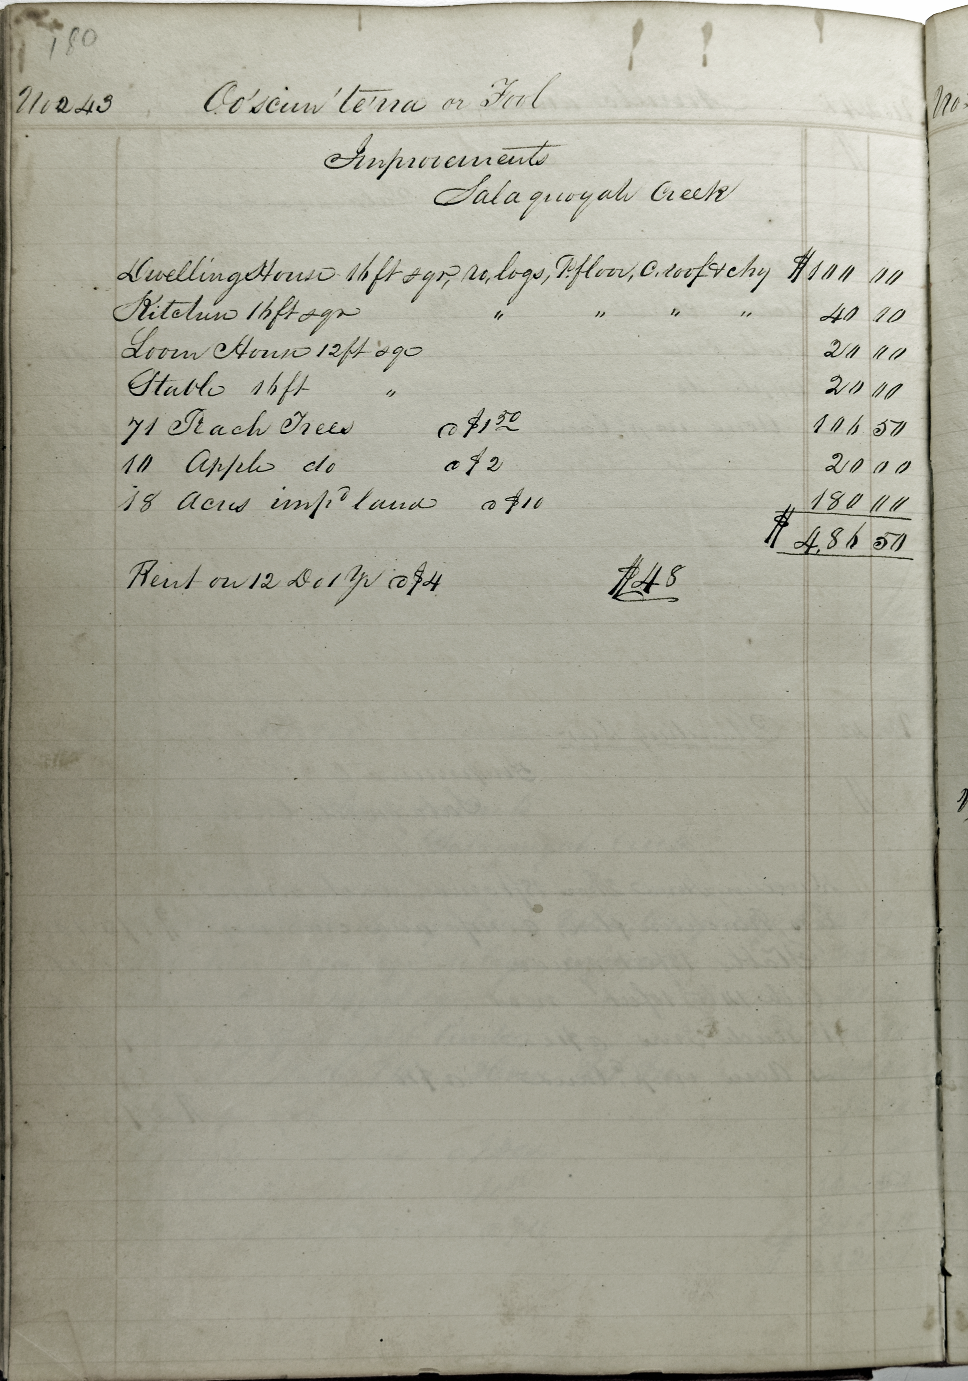 180
No 243 Oo'scun'te'na or Fool
Improvements
Salaquoyah Creek
Dwelling House 16 ft sqr, r, logs, P. floor, C. roof & chy $100 00
Kitchen 16 ft sqr " " " " 40 00
Loom House 12 ft sqr 20 00
Stable 16 ft " 20 00
71 Peach Trees @ $1 50 106 50
10 Apple do @ $2 20 00
18 Acres imp'd land @ $10 180 00
$ 486 50
Rent on 12 Do 1 Yr @ $4 $48